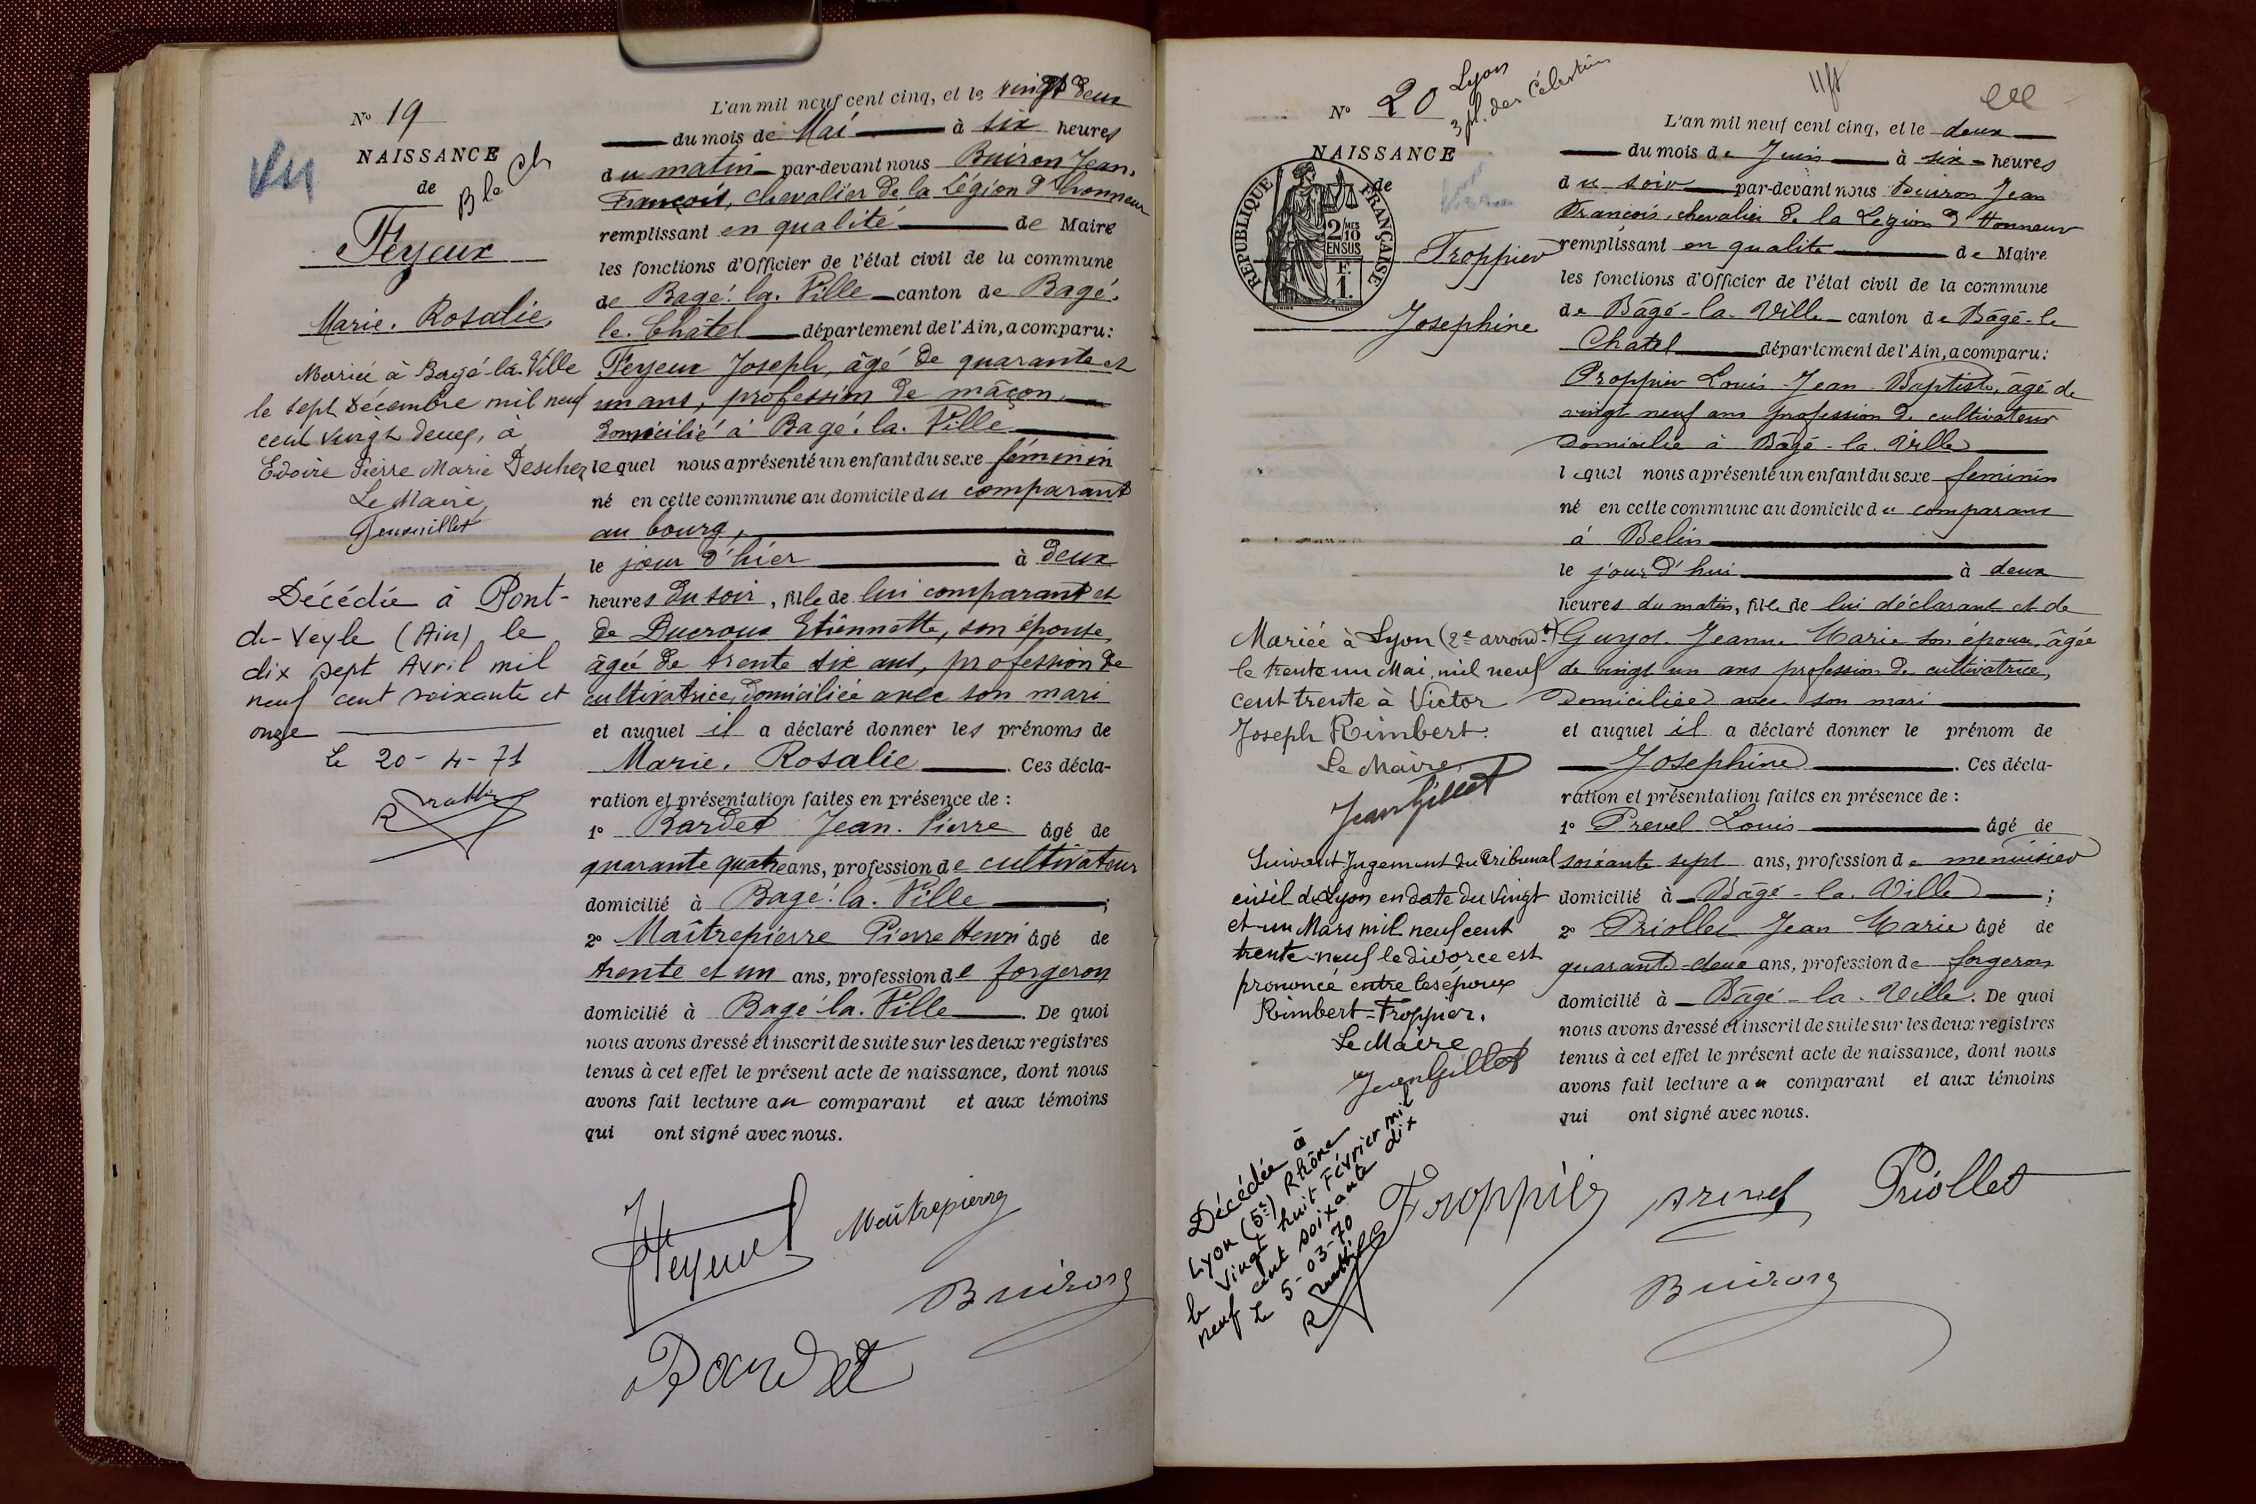 N° 19
NAISSANCE
de
B le Ch
Feyeux
Marie. Rosalie,
Mariée à Bagé-la-Ville
le sept Décembre mil neuf
cent vingt deux, à
Edoire Pierre Marie Descher
Le Maire,
Genouillet
Décédée à Pont-
de-Veyle (Ain) le
dix sept Avril mil
neuf cent soixante et
onze
Le 20-4-71
Vu
L'an mil neuf cent cinq, et le vingt deux
du mois de Mai à six heures
du matin par-devant nous Buiron Jean.
François, chevalier de la Légion d'honneur
remplissant en qualité de Maire
les fonctions d'Officier de l'état civil de la commune
de Bagé. la. Ville canton de Bagé.
le. Châtel département de l'Ain, a comparu:
Feyeux Joseph, âgé de quarante et
un ans, profession de mâçon
domicilié à Bagé. la. Ville
lequel nous a présenté un enfant du sexe féminin
né en cette commune au domicile du comparant
au bourg,
le jour d'hier à deux
heures du soir, fille de lui comparant et
de Ducroux Etiennette, son épouse
âgée de trente six ans, profession de
cultivatrice, domiciliée avec son mari
et auquel il a déclaré donner les prénoms de
Marie. Rosalie. Ces décla-
ration et présentation faites en présence de :
1° Bardet Jean. Pierre âgé de
quarante quatre ans, profession de cultivateur
domicilié à Bagé. la. Ville ;
2° Maîtrepierre Pierre Henri âgé de
trente et un ans, profession de forgeron
domicilié à Bagé la. Ville. De quoi
nous avons dressé et inscrit de suite sur les deux registres
tenus à cet effet le présent acte de naissance, dont nous
avons fait lecture au comparant et aux témoins
qui ont signé avec nous.
Feyeux
Maîtrepierre
Buiron
Bardet
N° 20
Lyon
3 pl. des Célestins
NAISSANCE
de
REPUBLIQUE FRANÇAISE
2/MES
10
EN SUS
F.
1.
Froppier
Josephine
Mariée à Lyon (2e arrondt)
le trente un Mai, mil neuf
cent trente à Victor
Joseph Rimbert.
Le Maire,
Jean Gillet
Suivant Jugement du Tribunal
civil de Lyon en date du vingt
et un Mars mil neuf cent
trente-neuf le divorce est
prononcé entre les époux
Rimbert-Froppier.
Le Maire
Jean Gillet
Décédée à
Lyon (5e) Rhône
le vingt huit Février mil
neuf cent soixante dix
Le 5-03-70
L'an mil neuf cent cinq, et le deux
du mois de Juin à six heures
du soir par-devant nous Buiron Jean
François, chevalier de la Légion d'Honneur
remplissant en qualité de Maire
les fonctions d'Officier de l'état civil de la commune
de Bâgé-la-Ville canton de Bâgé-le
Chatel département de l'Ain, a comparu:
Froppier Louis-Jean-Baptiste, âgé de
vingt neuf ans profession de cultivateur
domicilié à Bâgé-la-Ville
lequel nous a présenté un enfant du sexe feminin
né en cette commune au domicile du comparant
à Belin
le jour d'hui à deux
heures du matin, fille de lui déclarant et de
Guyot Jeanne Marie son épouse, âgée
de vingt un ans profession de cultivatrice,
domiciliée avec son mari
et auquel il a déclaré donner le prénom de
Josephine. Ces décla-
ration et présentation faites en présence de :
1° Prevel Louis âgé de
soixante sept ans, profession de menuisier
domicilié à Bâgé-la-Ville ;
2° Priollet Jean Marie âgé de
quarante-deux ans, profession de forgeron
domicilié à Bâgé-la-Ville. De quoi
nous avons dressé et inscrit de suite sur les deux registres
tenus à cet effet le présent acte de naissance, dont nous
avons fait lecture au comparant et aux témoins
qui ont signé avec nous.
Froppier
Prevel
Priollet
Buiron